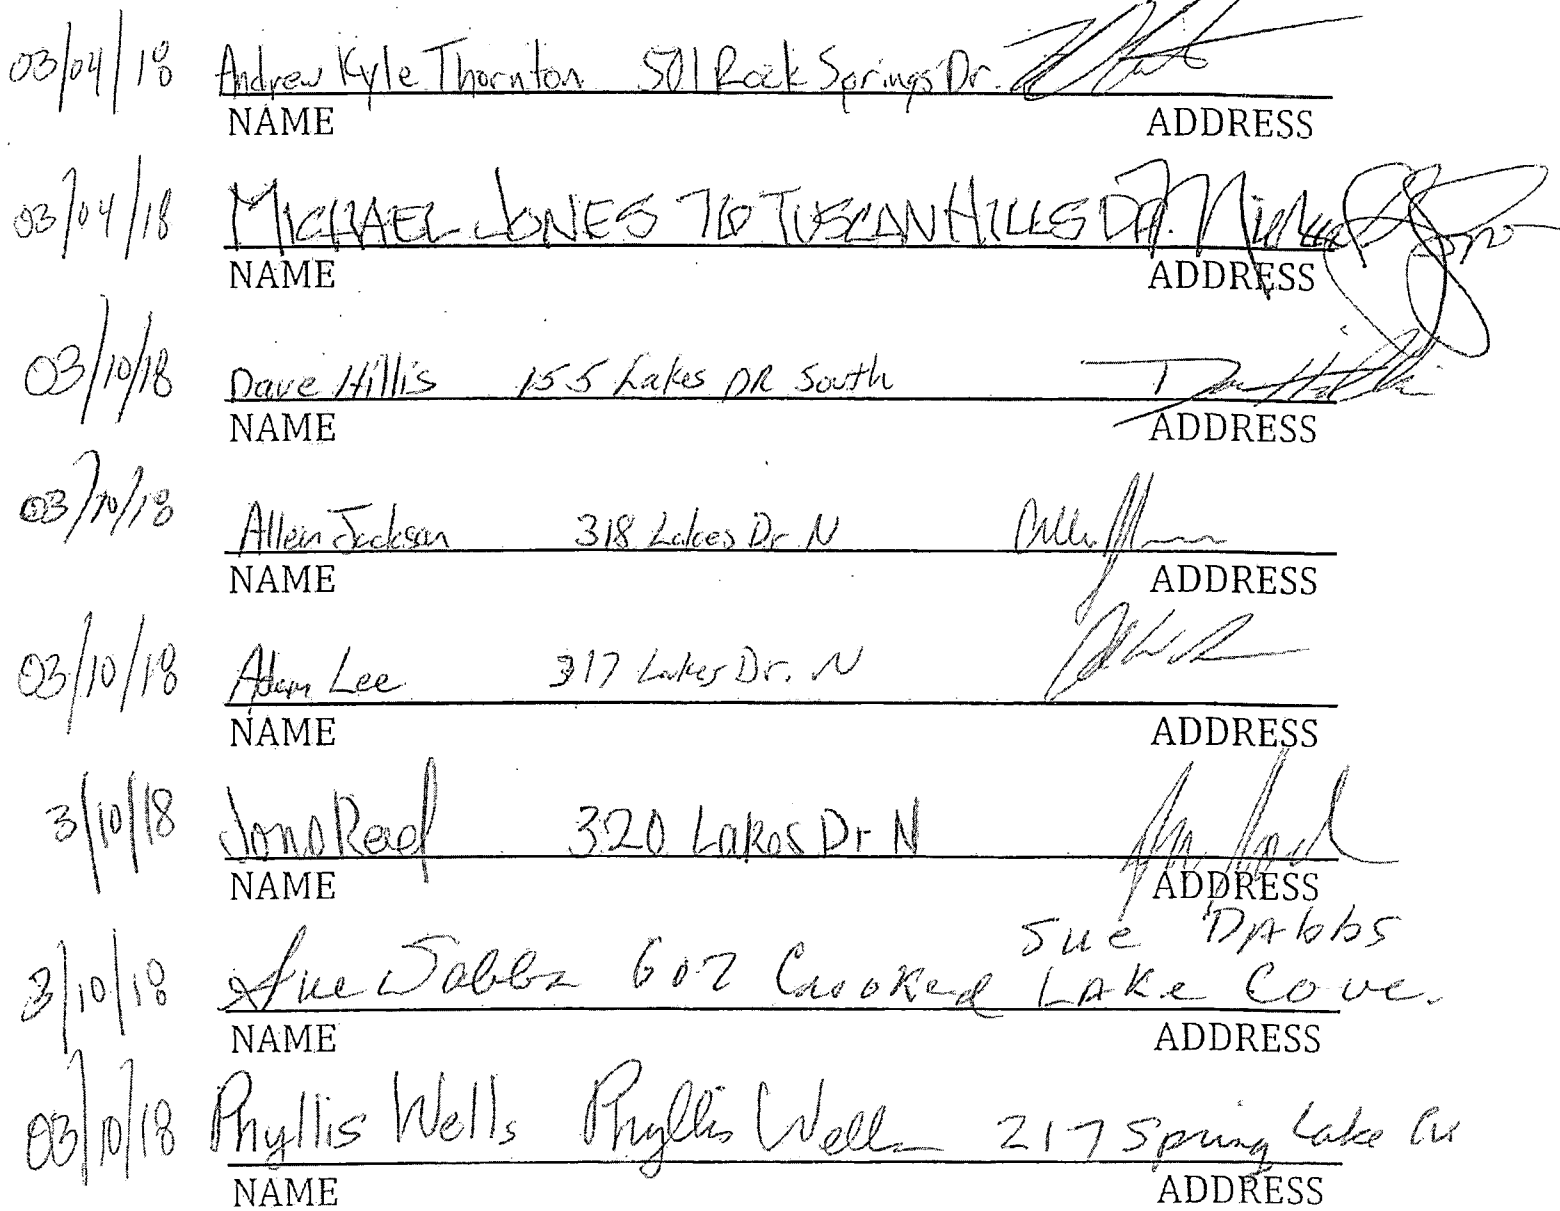 03/04/18 Andrew Kyle Thornton 501 Rock Springs Dr.
NAME ADDRESS
03/04/18 MICHAEL JONES TUSCAN HILLS DR.
NAME ADDRESS
03/10/18 Dave Hillis 155 Lakes DR South
NAME ADDRESS
03/10/18 Allen Jackson 318 Lakes Dr N
NAME ADDRESS
03/10/18 Adam Lee 317 Lakes Dr. N
NAME ADDRESS
3/10/18 Jono Read 320 Lakes Dr N
NAME ADDRESS
Sue DAbbs
3/10/18 Sue Dabbs 607 Crooked LAKe Cove.
NAME ADDRESS
03/10/18 Phyllis Wells Phyllis Wells 217 Spring Lake
NAME ADDRESS